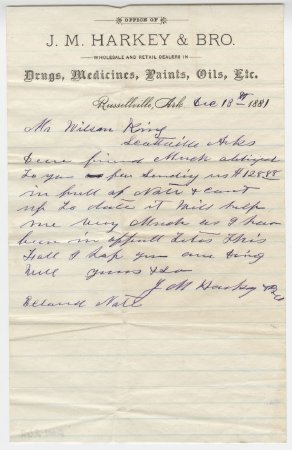 OFFICE OF
J. M. HARKEY & BRO.
WHOLESALE AND RETAIL DEALERS IN
Drugs, Medicines, Paints, Oils, Etc.
Russellville, Ark Dec 13th 1881
Mr Wilson King
Scottville Arks
Dear friend Much obliged
To you for Sending us $128.98
in full of Note & acount
up To date it Will help
me very Much as I have
been in Tight this
fall I hop you are
Well yours &c
J M Harkey & Bro
Enclosed Note